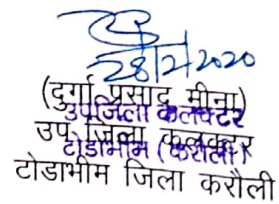 28/2/2020
(दुर्गा प्रसाद मीना)
उपजिला कलक्टर
उप जिला कलक्टर
टोडाभीम (करौली)
टोडाभीम जिला करौली